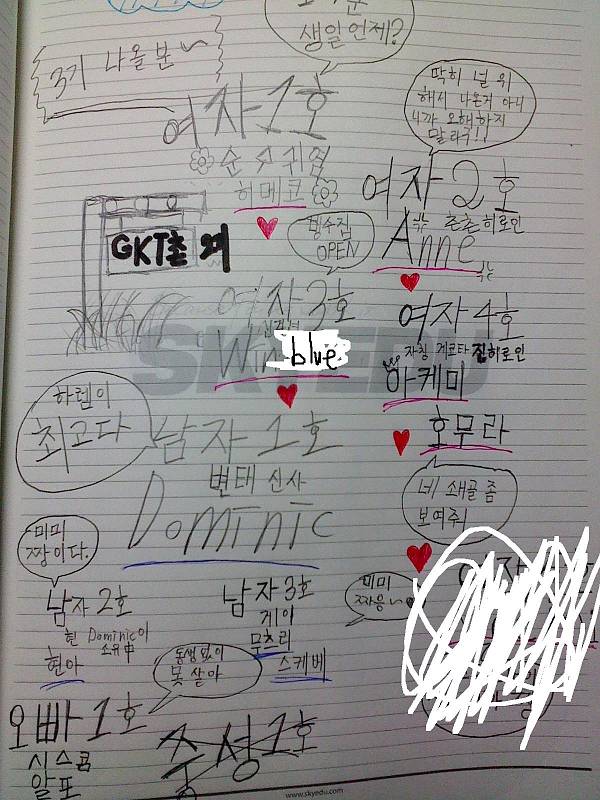 생일언제?
3기 나올분~
여자1호
순수귀염
히메코
GKT촌
딱히 널 위
해서 나온게 아니
니까 오해하지
말라구!!
여자2호
츤츤히로인
Anne
빙수집
OPEN
여자3호
Win blue
여자4호
자칭 게코타 진히로인
아케미
호무라
네 쇄골 좀
보여줘!
하렘이
최고다
남자1호
변태 신사
Dominic
미미
짱이다.
남자2호
현 Dominic이
소유中
현아
남자3호
게이
무츠리
스케베
미미
짜응~
동생없이
못살아
오빠1호
시스콤
알포
중성1호
SKYEDU
www.skyedu.com